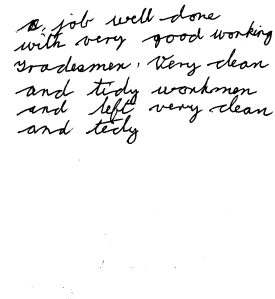 a, job well done
with very good working
tradesmen, Very clean
and tidy workmen
and left very clean
and tidy